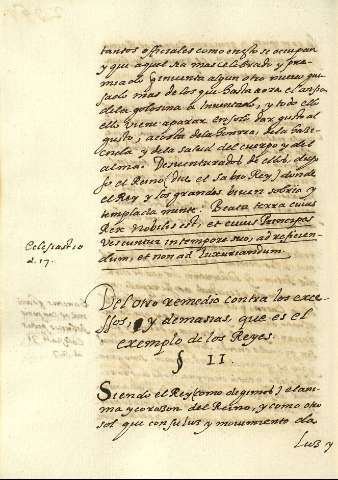 tantos officiales como en esto se ocupan
y que aquel sea mas celebrado y pre-
miado q inventa algun otro nuevo gui-
sado mas de los que hasta aora el antojo
de la golosina a Inventado, y todo ello
ello viene a parar en solo dar gusto al
gusto, a costa de la honrra, de la
y de la salud del cuerpo y del
alma. Desventurados de ellos, dicho-
so el Reino (dice el sabio Rey) donde
el Rey y los grandes biven sobria y
templada mente. Beata terra cuius
Rex nobilis est, et cuius Principes
Vescuntur in tempore suo, ad reficien-
dum, et non ad Luxuriandum.
Eclesiastio
d. 17.
Del otro remedio contra los exce-
ssos, y demasias, que es el
exemplo de los Reyes.
§ 11.
Siendo el Rey (como digimos) el ani-
ma y corazon del Reino, y como otro
sol que con su luz y movimiento da
Luz y